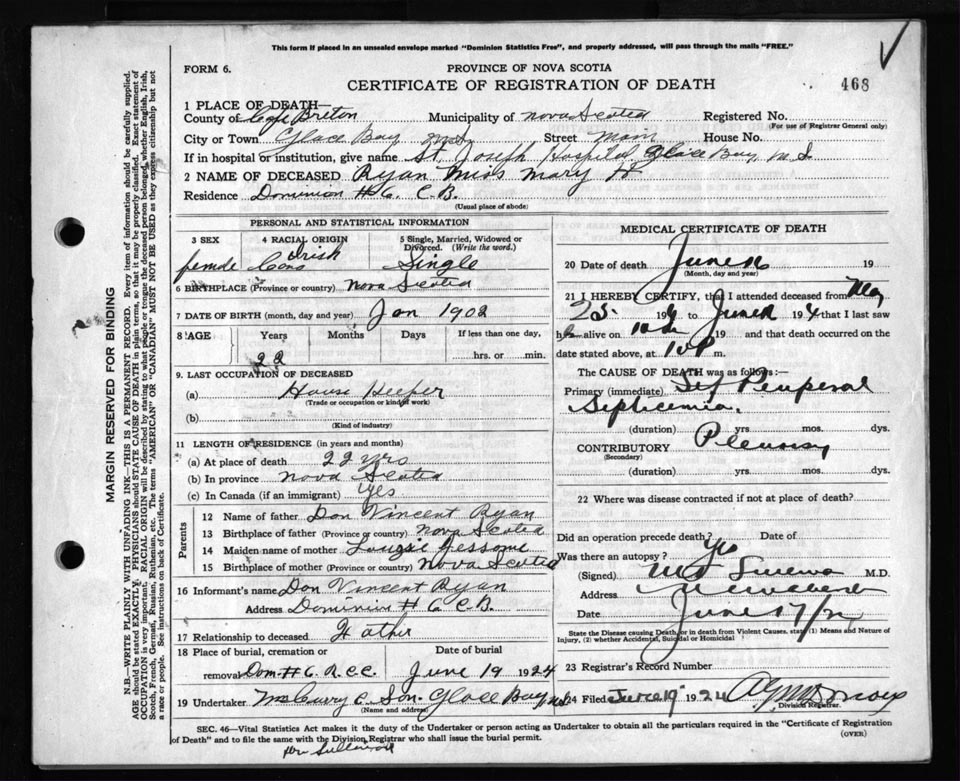 This form if placed in an unsealed envelope marked "Dominion Statistics Free", and properly addressed, will pass through the mails "FREE."
FORM 6.
PROVINCE OF NOVA SCOTIA
CERTIFICATE OF REGISTRATION OF DEATH
468
1 PLACE OF DEATH—
County of Cape Breton Municipality of Nova Scotia Registered No.
(For use of Registrar General only)
City or Town Glace Bay Street Main House No.
If in hospital or institution, give name St. Joseph Hospital Glace Bay
2 NAME OF DECEASED Ryan Miss Mary
Residence Dominion #6. C.B.
(Usual place of abode)
PERSONAL AND STATISTICAL INFORMATION
3 SEX 4 RACIAL ORIGIN 5 Single, Married, Widowed or Divorced. (Write the word.)
female Irish Single
6 BIRTHPLACE (Province or country) Nova Scotia
7 DATE OF BIRTH (month, day and year) Jan 1902
8 AGE Years Months Days If less than one day,
22 hrs. or min.
9. LAST OCCUPATION OF DECEASED
(a) House Keeper
(Trade or occupation or kind of work)
(b)
(Kind of industry)
11 LENGTH OF RESIDENCE (in years and months)
(a) At place of death 22 yrs
(b) In province Nova Scotia
(c) In Canada (if an immigrant) Yes
Parents
12 Name of father Don Vincent Ryan
13 Birthplace of father (Province or country) Nova Scotia
14 Maiden name of mother Jessome
15 Birthplace of mother (Province or country) Nova Scotia
16 Informant's name Don Vincent Ryan
Address Dominion # 6 C.B.
17 Relationship to deceased Father
18 Place of burial, cremation or removal Date of burial
Dom. #6. R.C.C. June 19 1924
19 Undertaker & Son. Glace Bay
(Name and address)
MEDICAL CERTIFICATE OF DEATH
20 Date of death June 16 19
(Month, day and year)
21 I HEREBY CERTIFY, that I attended deceased from May
25. 19 to June 19 4 that I last saw
h alive on 19 and that death occurred on the
date stated above, at m.
The CAUSE OF DEATH was as follows:—
Primary (immediate) Puerperal
Septicemia.
(duration) yrs. mos. dys.
CONTRIBUTORY Pleurisy
(Secondary)
(duration) yrs. mos. dys.
22 Where was disease contracted if not at place of death?
Did an operation precede death? Yes Date of
Was there an autopsy?
(Signed) M.D.
Address
Date June 17/24
State the Disease causing Death, or in death from Violent Causes, state (1) Means and Nature of Injury, (2) whether Accidental, Suicidal or Homicidal
23 Registrar's Record Number
24 Filed June 19 1924
Division Registrar.
SEC. 46—Vital Statistics Act makes it the duty of the Undertaker or person acting as Undertaker to obtain all the particulars required in the "Certificate of Registration of Death" and to file the same with the Division Registrar who shall issue the burial permit.
(OVER)
MARGIN RESERVED FOR BINDING
N.B.—WRITE PLAINLY WITH UNFADING INK—THIS IS A PERMANENT RECORD. Every item of information should be carefully supplied.
AGE should be stated EXACTLY. PHYSICIANS should STATE CAUSE OF DEATH in plain terms, so that it may be properly classified. Exact statement of
OCCUPATION is very important. RACIAL ORIGIN will be described by stating to what people or tongue the deceased person belonged, whether English, Irish,
Scotch, French, German, Russian, Ruthenian, etc. The terms "AMERICAN" or "CANADIAN" MUST NOT BE USED as they express citizenship but not
a race or people. See instructions on back of Certificate.